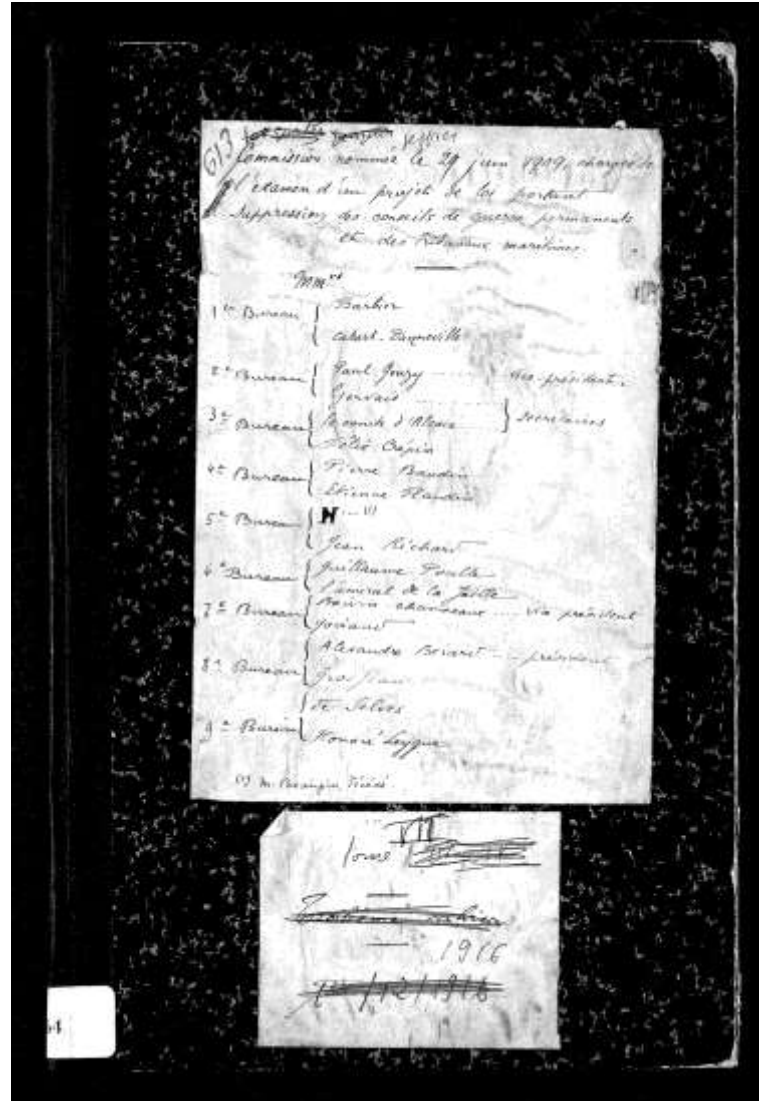 613
Commission nommée le 29 juin 1909, chargée de
l'examen d'un projet de loi portant
suppression des conseils de guerre permanents
et des tribunaux maritimes.
MM.rs
1er Bureau { Barbier
Cabart-Danneville
2e Bureau { Paul Gouzy ... vice-président
Gervais
3e Bureau { le comte d'Alsace } secrétaires
Crépin
4e Bureau { Pierre Baudin
Etienne Flandin
5e Bureau { N... (1)
Jean Richard
6e Bureau { Guillaume Poulle
l'amiral de la Jaille
7e Bureau { chanceaux ... vice président
8e Bureau { Alexandre Bérard ... président
Grosjean
9e Bureau { de Selves
Honoré Leygue
(1) M. décédé.
Tome VII
1916
12/1916